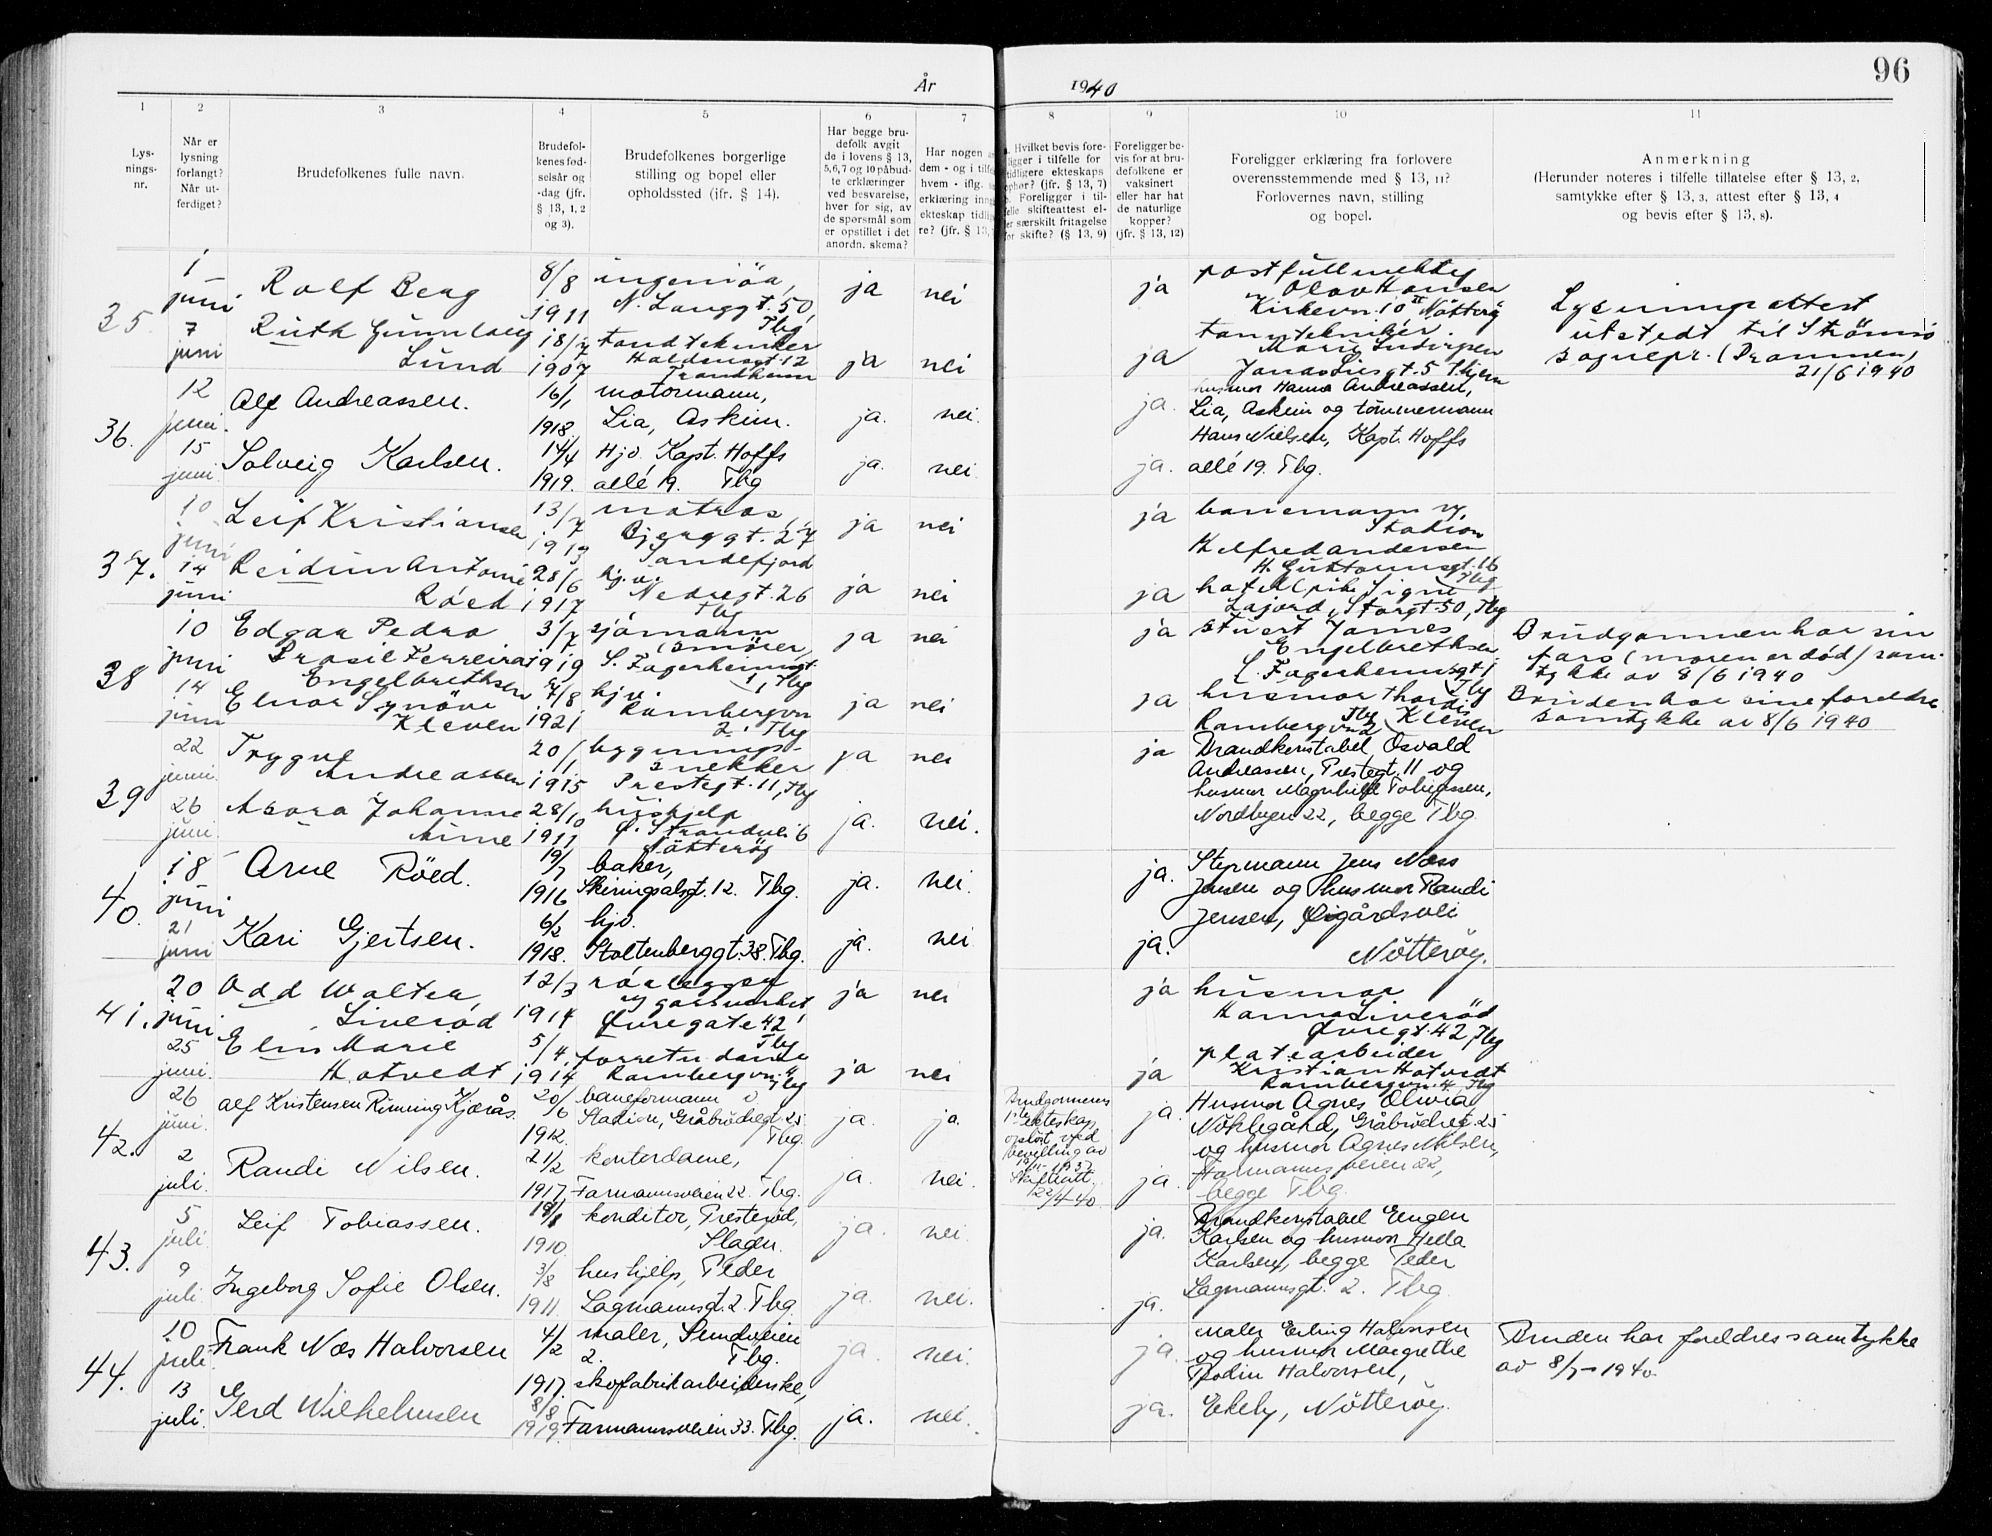 96
År 1940
1 2 3 4 5 6 7 8 9 10 11
Lysnings-nr.
Når er lysning forlangt? Når utferdiget?
Brudefolkenes fulle navn.
Brudefolkenes fødselsår og -dag (jfr. § 13, 1, 2 og 3).
Brudefolkenes borgerlige stilling og bopel eller opholdssted (jfr. § 14).
Har begge brudefolk avgit de i lovens § 13, 5,6,7 og 10 påbudte erklæringer ved besvarelse, hver for sig, av de spørsmål som er opstillet i det anordn. skema?
Har nogen a dem - og i tilfe hvem - iflg. erklæring inng ekteskap tidlig re? (jfr. § 13,
Hvilket bevis foreligger i tilfelle for tidligere ekteskaps ophør? (jfr. § 13, 7) Foreligger i tilfelle skifteattest eller særskilt fritagelse for skifte? (§ 13, 9)
Foreligger bevis for at brudefolkene er vaksinert eller har hat de naturlige kopper? (jfr. § 13, 12)
Foreligger erklæring fra forlovere overensstemmende med § 13, 11? Forlovernes navn, stilling og bopel.
Anmerkning (Herunder noteres i tilfelle tillatelse efter § 13, 2, samtykke efter § 13, 3, attest efter § 13, 4 og bevis efter § 13, 8).
35.
1 juni Rolf Berg 8/8 1911 ingeniør, N. Langgt. 50, Tbg ja nei ja postfullmektig Olav Hansen Kirkevn. 10 II Nötteröy
7 juni Ruth Gunnlaug Lund 18/7 1907 tandtekniker Haldensgt. 12 Trondheim ja nei ja tanntekniker. Marie Ludvigsen Jonas Liesgt. 5 Skien
Lysningsattest
utstedt til Strömsö
sognepr. (Drammen)
21/6 1940
36.
12 juni. Alf Andreassen. 16/1 1918. motormann, Lia, Askim. ja. nei. ja. husmor Hanna Andreassen,
Lia, Askim og tömmermann
Hans Nielsen, Kapt. Hoffs
15 juni Solveig Karlsen. 14/4 1919. Hjv. Kapt. Hoffs allé 19. Tbg ja. nei. ja. allé 19. Tbg.
37.
10 juni Leif Kristiansen 13/7 1913 matros, Bjerggt. 27 Sandefjord ja nei ja banemann v, Stadion
Halfred Andersen
H. Guttormsgt. 16 Tbg
14 juni Reidun Antonie Röed 28/6 1917 hj.v. Nedregt. 26 Tbg ja nei ja hotellpike Signe
Lajord, Storgt 50, Tbg
38
10 juni Edgar Pedro Brasil Ferreira Engelbrethsen 3/7 1919 sjömann smörer, S. Fagerheimsgt 1, Tbg ja nei ja stuert James
Engelbrethsen
S. Fagerheimsgt 1 Tbg
Brudgommen har sin
fars (moren er död) sam-
tykke av 8/6 1940
14 juni Elnor Synöve Kleven 7/8 1921 hjv. Rambergvn 2, Tbg ja nei ja husmor Thordis Kleven
Rambergvn 2 Tbg
Bruden har sine foreldres
samtykke av 8/6 1940
39
22 juni Trygve Andreassen 20/1 1915 bygnings- snekker Prestegt. 11, Tbg ja nei ja Brandkonstabel Osvald
Andreassen, Prestegt. 11 og
husmor Magnhild Tobiassen,
26 juni. Asora Johanne Arne 28/10 1911 hushjelp Ö. Strandvei 6 Nötteröy ja. nei. Nordbyen 22, begge Tbg.
40.
18 juni Arne Röed. 19/7 1916 baker, Skiringsalsgt. 12. Tbg. ja. nei. ja. Styrmann Jens Næss
Jensen og husmor Randi
Jensen, Øigårdsvei
21 juni Kari Gjertsen. 6/2 1918. hjv. Stoltenberggt. 38. Tbg. ja. nei ja. Nötteröy.
41.
20 juni Odd Walter, Liveröd 12/3 1914 rörlegger v gassverket, Övregate 42, Tbg ja nei ja husmor
Hanna Liveröd
Övregt. 42, Tbg
25 juni. Elin Marie Hotvedt 5/4 1914 forretn. dame Rambergvn. 4 Tbg ja nei ja platearbeider
Kristian Hotvedt
Rambergvn. 4. Tbg
42.
26 juni. Alf Kristensen Rinning Kjærås. 20/6 1912. baneformann v Stadion, Gråbrödregt. 25 Tbg. ja. ja. Brudgommens
1ste ekteskap
oplöst ved
bevilling av
1937
Skifteatt.
22/4-40
ja. Husmor Agnes Olivia
Nöklegård, Gråbrödregt. 25
og husmor Agnes Nilsen,
2 juli. Randi Nilsen. 21/2 1917. kontordame, Farmannsveien 22. Tbg. ja. nei. ja. Farmannsveien 22,
begge Tbg.
43.
5 juli Leif Tobiassen. 18/8 1910. konditor, Presteröd, Slagen. ja. nei. ja. Brandkonstabel Eugen
Karlsen og husmor Hella
Karlsen, begge Peder
9 juli. Ingeborg Sofie Olsen. 3/8 1911. hushjelp, Peder Lagmannsgt. 2. Tbg. ja. nei. ja. Lagmannsgt. 2. Tbg.
44.
10 juli Frank Næs Halvorsen 4/2 1917. maler, Sundveien 2. Tbg. ja. nei. ja. maler Erling Halvorsen
og husmor Margrethe
Bodin Halvorsen,
Bruden har foreldres samtykke
av 8/7-1940.
13 juli. Gerd Wilhelmsen 8/8 1919. skofabrikarbeiderske, Farmannsveien 33. Tbg. ja. nei. ja. Ekely, Nötteröy.